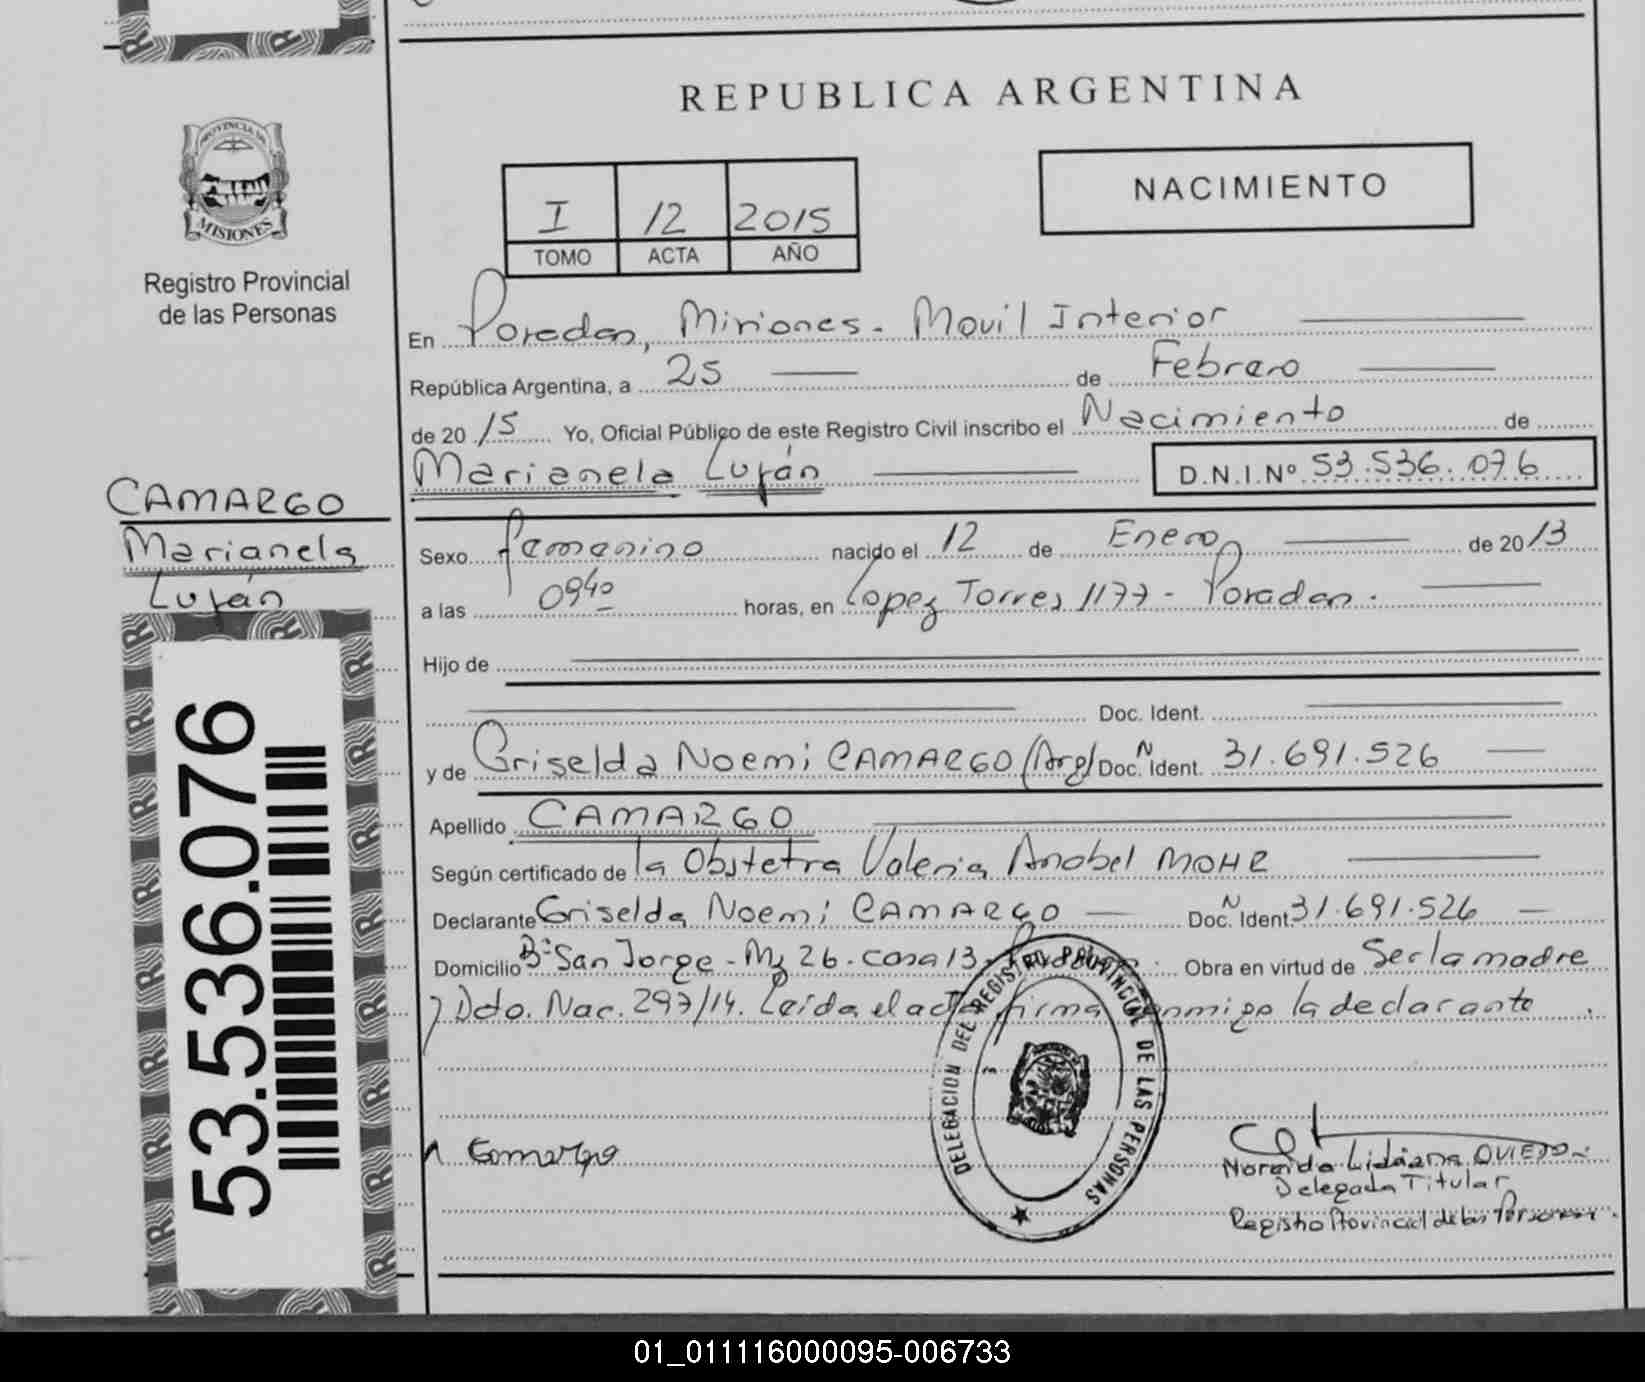 REPUBLICA ARGENTINA
PROVINCIA DE
MISIONES
Registro Provincial
de las Personas
NACIMIENTO
I 12 2015
TOMO ACTA AÑO
En Posadas, Misiones. Movil Interior
República Argentina, a 25 de Febrero
de 20 15 Yo, Oficial Público de este Registro Civil inscribo el Nacimiento de
Marianela Luján D.N.I.Nº 53.536.076
CAMARGO
Marianela
Luján
Sexo femenino nacido el 12 de Enero de 20 13
a las 0940 horas, en Lopez Torres 1177 - Posadas.
Hijo de
Doc. Ident.
y de Griselda Noemi CAMARGO (Arg) Doc. N Ident. 31.691.526
Apellido CAMARGO
Según certificado de la Obstetra Valeria Anabel MOHR
Declarante Griselda Noemi CAMARGO Doc. N Ident. 31.691.526
Domicilio Bº San Jorge - Mz 26. casa 13. Posadas. Obra en virtud de Ser la madre
y Dcto. Nac. 297/14. Leída el acta firma conmigo la declarante.
53.536.076
DELEGACION DEL REGISTRO PROVINCIAL DE LAS PERSONAS
Camargo
OVIEDO
Delegada Titular
Registro Provincial de las Personas.
01_011116000095-006733